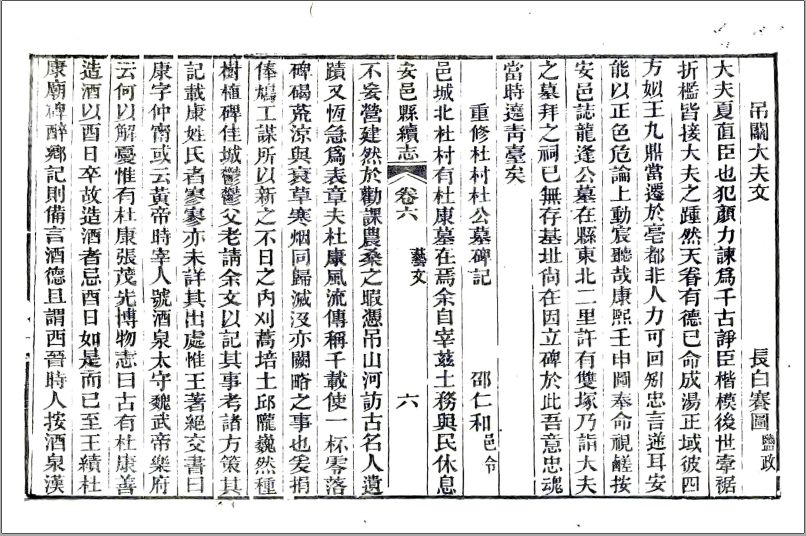 弔關大夫文 長白賽圖鹽政
大夫夏直臣也犯顏力諫爲千古諍臣楷模後世牽裾
折檻皆接大夫之踵然天眷有德已命成湯正域彼四
方姒王九鼎當遷於亳都非人力可回矧忠言逆耳安
能以正色危論上動宸聽哉康熙壬申圖奉命視鹺按
安邑誌龍逢公墓在縣東北二里許有雙塚乃詣大夫
之墓拜之祠已無存基址尚在因立碑於此吾意忠魂
當時遶靑臺矣
重修杜村杜公墓碑記 邵仁和邑令
邑城北杜村有杜康墓在焉余自宰茲土務與民休息
安邑縣續志 卷六 藝文 六
不妄營建然於勸課農桑之暇憑吊山河訪古名人遺
蹟又恆急爲表章夫杜康風流傳稱千載使一杯零落
碑碣荒涼與衰草寒烟同歸滅沒亦闕略之事也爰捐
俸鳩工謀所以新之不日之內刈蒿培土邱隴巍然種
樹植碑佳城鬱鬱父老請余文以記其事考諸方策其
記載康姓氏者寥寥亦未詳其出處惟王著絕交書曰
康字仲甯或云黃帝時宰人號酒泉太守魏武帝樂府
云何以解憂惟有杜康張茂先博物志曰古有杜康善
造酒以酉日卒故造酒者忌酉日如是而已至王績杜
康廟碑醉鄉記則備言酒德且謂西晉時人按酒泉漢